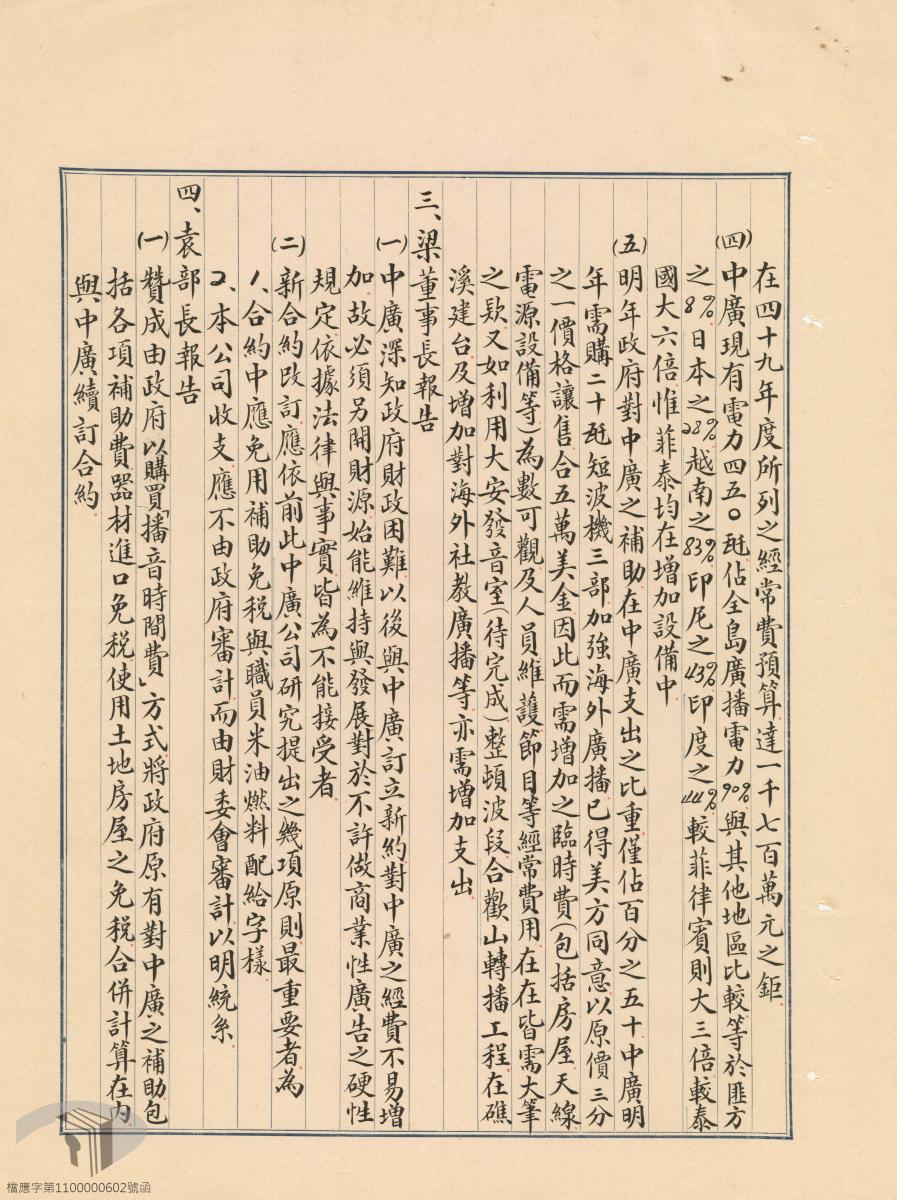 在四十九年度所列之經常費預算達一千七百萬元之鉅
(四)中廣現有電力四五〇瓩佔全島廣播電力90%與其他地區比較等於匪方
之8%日本之28%越南之83%印尼之43%印度之44%較菲律賓則大三倍較泰
國大六倍惟菲泰均在增加設備中
(五)明年政府對中廣之補助在中廣支出之比重僅佔百分之五十中廣明
年需購二十瓩短波機三部加強海外廣播已得美方同意以原價三分
之一價格讓售合五萬美金因此而需增加之臨時費(包括房屋天線
電源設備等)為數可觀及人員維護節目等經常費用在在皆需大筆
之款又如利用大安發音室(待完成)整頓波段合歡山轉播工程在礁
溪建台及增加對海外社教廣播等亦需增加支出
三、梁董事長報告
(一)中廣深知政府財政困難以後與中廣訂立新約對中廣之經費不易增
加故必須另開財源始能維持與發展對於不許做商業性廣告之硬性
規定依據法律與事實皆為不能接受者
(二)新合約改訂應依前此中廣公司研究提出之幾項原則最重要者為
1、合約中應免用補助免稅與職員米油燃料配給字樣
2、本公司收支應不由政府審計而由財委會審計以明統系
四、袁部長報告
(一)贊成由政府以購買「播音時間費」方式將政府原有對中廣之補助包
括各項補助費器材進口免稅使用土地房屋之免稅合併計算在內
與中廣續訂合約
檔應字第1100000602號函